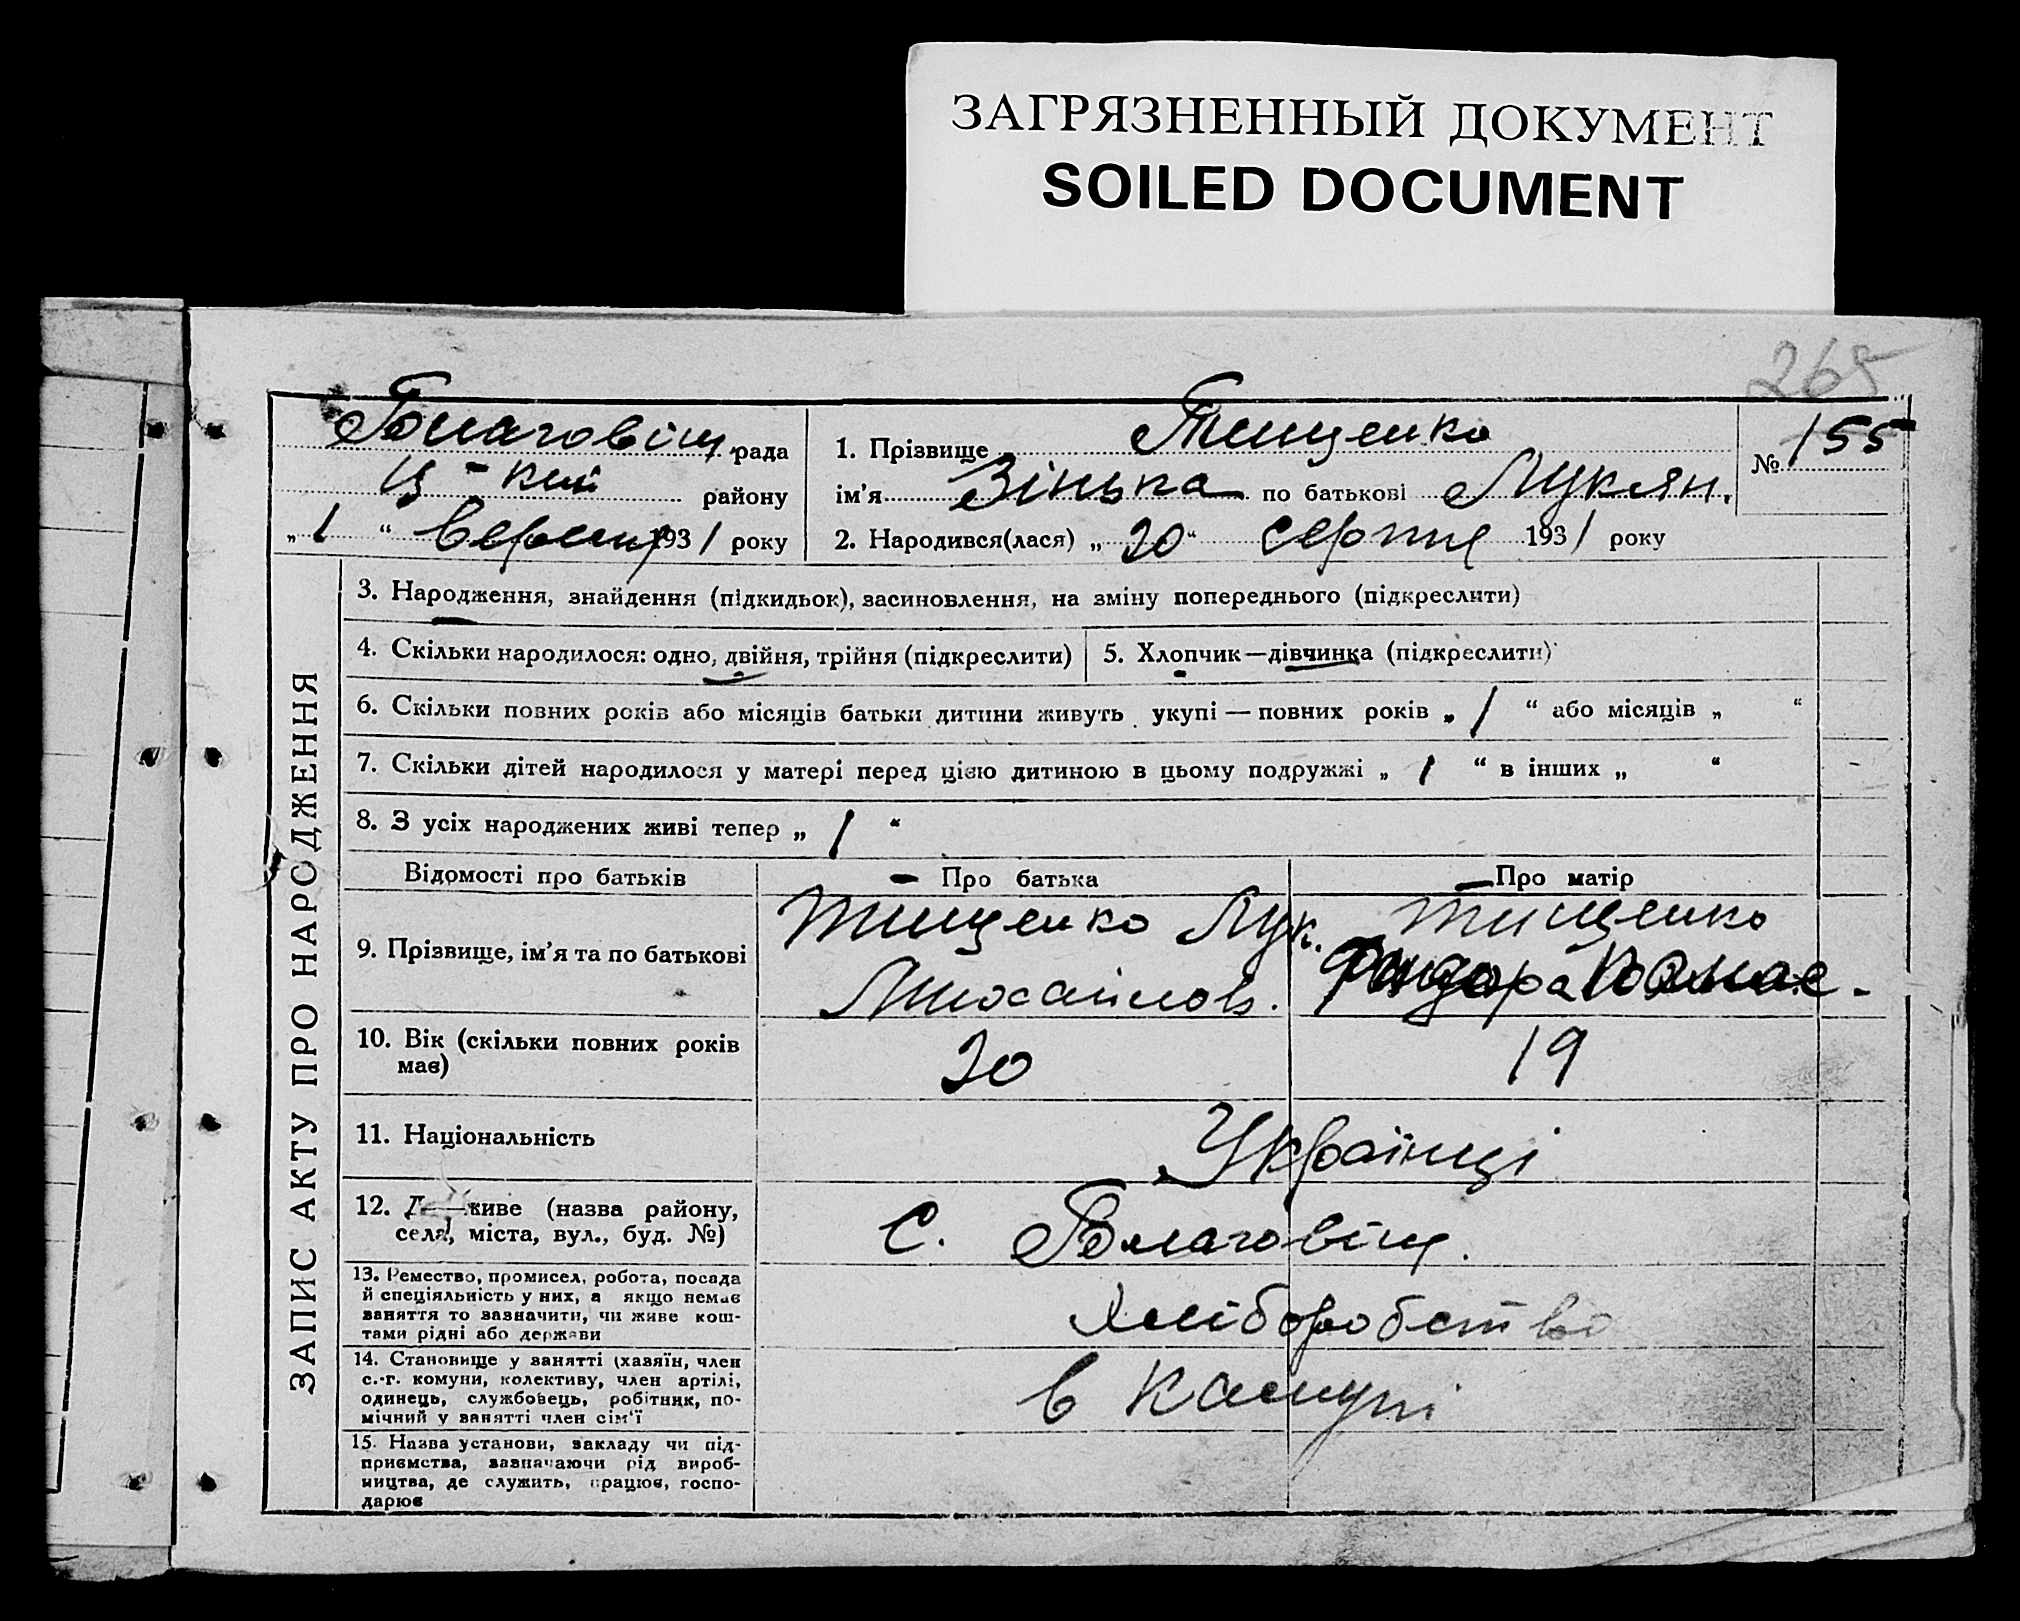 ЗАГРЯЗНЕННЫЙ ДОКУМЕНТ
SOILED DOCUMENT
265
рада
1. Прізвище Тищенко
№ 155
Ц-кий району
ім'я Зінька по батькові Лукян.
„ 1 “ Вересня 1931 року
2. Народився(лася) „ 20 “ серпня 1931 року
ЗАПИС АКТУ ПРО НАРОДЖЕННЯ
3. Народження, знайдення (підкидьок), засиновлення, на зміну попереднього (підкреслити)
4. Скільки народилося: одно, двійня, трійня (підкреслити)
5. Хлопчик—дівчинка (підкреслити)
6. Скільки повних років або місяців батьки дитини живуть укупі — повних років „ 1 “ або місяців „ “
7. Скільки дітей народилося у матері перед цією дитиною в цьому подружжі „ 1 “ в інших „ “
8. З усіх народжених живі тепер „ 1 “
Відомості про батьків
Про батька
Про матір
9. Прізвище, ім'я та по батькові
Тищенко Лук.
Михайлов.
Тищенко
10. Вік (скільки повних років
має)
20
19
11. Національність
Українці
12. Де живе (назва району,
села, міста, вул., буд. №)
с.
13. Ремество, промисел, робота, посада
й спеціяльність у них, а якщо немає
заняття то зазначити, чи живе кош-
тами рідні або держави
Хліборобство
14. Становище у занятті (хазяїн, член
с.-г. комуни, колективу, член артілі,
одинець, службовець, робітник, по-
мічний у занятті член сім'ї
в
15. Назва установи, закладу чи під-
приємства, зазначаючи рід вироб-
ництва, де служить, працює, госпо-
дарює